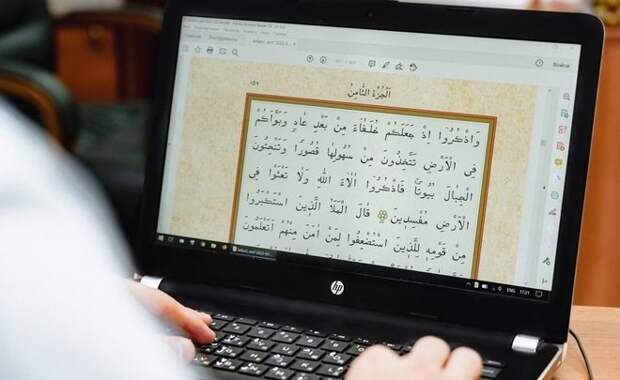 Войти
١٥٩ اَلْجُزْءُ الثَّامِنُ
وَاذْكُرُوا اِذْ جَعَلَكُمْ خُلَفَاءَ مِنْ بَعْدِ عَادٍ وَبَوَّاَكُمْ
فِي الْاَرْضِ تَتَّخِذُونَ مِنْ سُهُولِهَا قُصُورًا وَتَنْحِتُونَ
الْجِبَالَ بُيُوتًا فَاذْكُرُوا اٰلَاءَ اللّٰهِ وَلَا تَعْثَوْا فِي
الْاَرْضِ مُفْسِدِينَ قَالَ الْمَلَاُ الَّذِينَ اسْتَكْبَرُوا
مِنْ قَوْمِهِ لِلَّذِينَ اسْتُضْعِفُوا لِمَنْ اٰمَنَ مِنْهُمْ اَتَعْلَمُونَ
ENG 17:01
hp